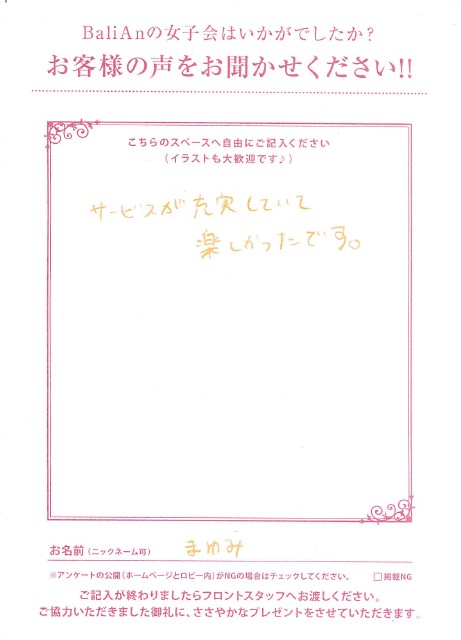 BaliAnの女子会はいかがでしたか?
お客様の声をお聞かせください!!
こちらのスペースへ自由にご記入ください
(イラストも大歓迎です♪)
サービスが充実していて
楽しかったです。
お名前(ニックネーム可) まゆみ
※アンケートの公開(ホームページとロビー内)がNGの場合はチェックしてください。 □掲載NG
ご記入が終わりましたらフロントスタッフへお渡しください。
ご協力いただきました御礼に、ささやかなプレゼントをさせていただきます。